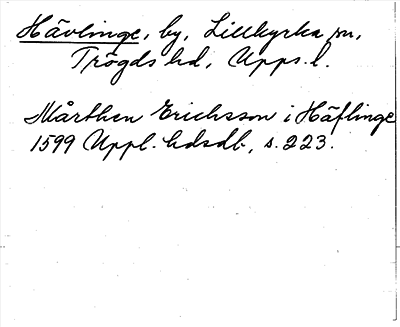 Hävlinge, by, Lillkyrka sn,
Trögds hd, Upps. l.
Mårthen Erichsson i Häflinge
1599 Uppl. hdsdb, s. 223.